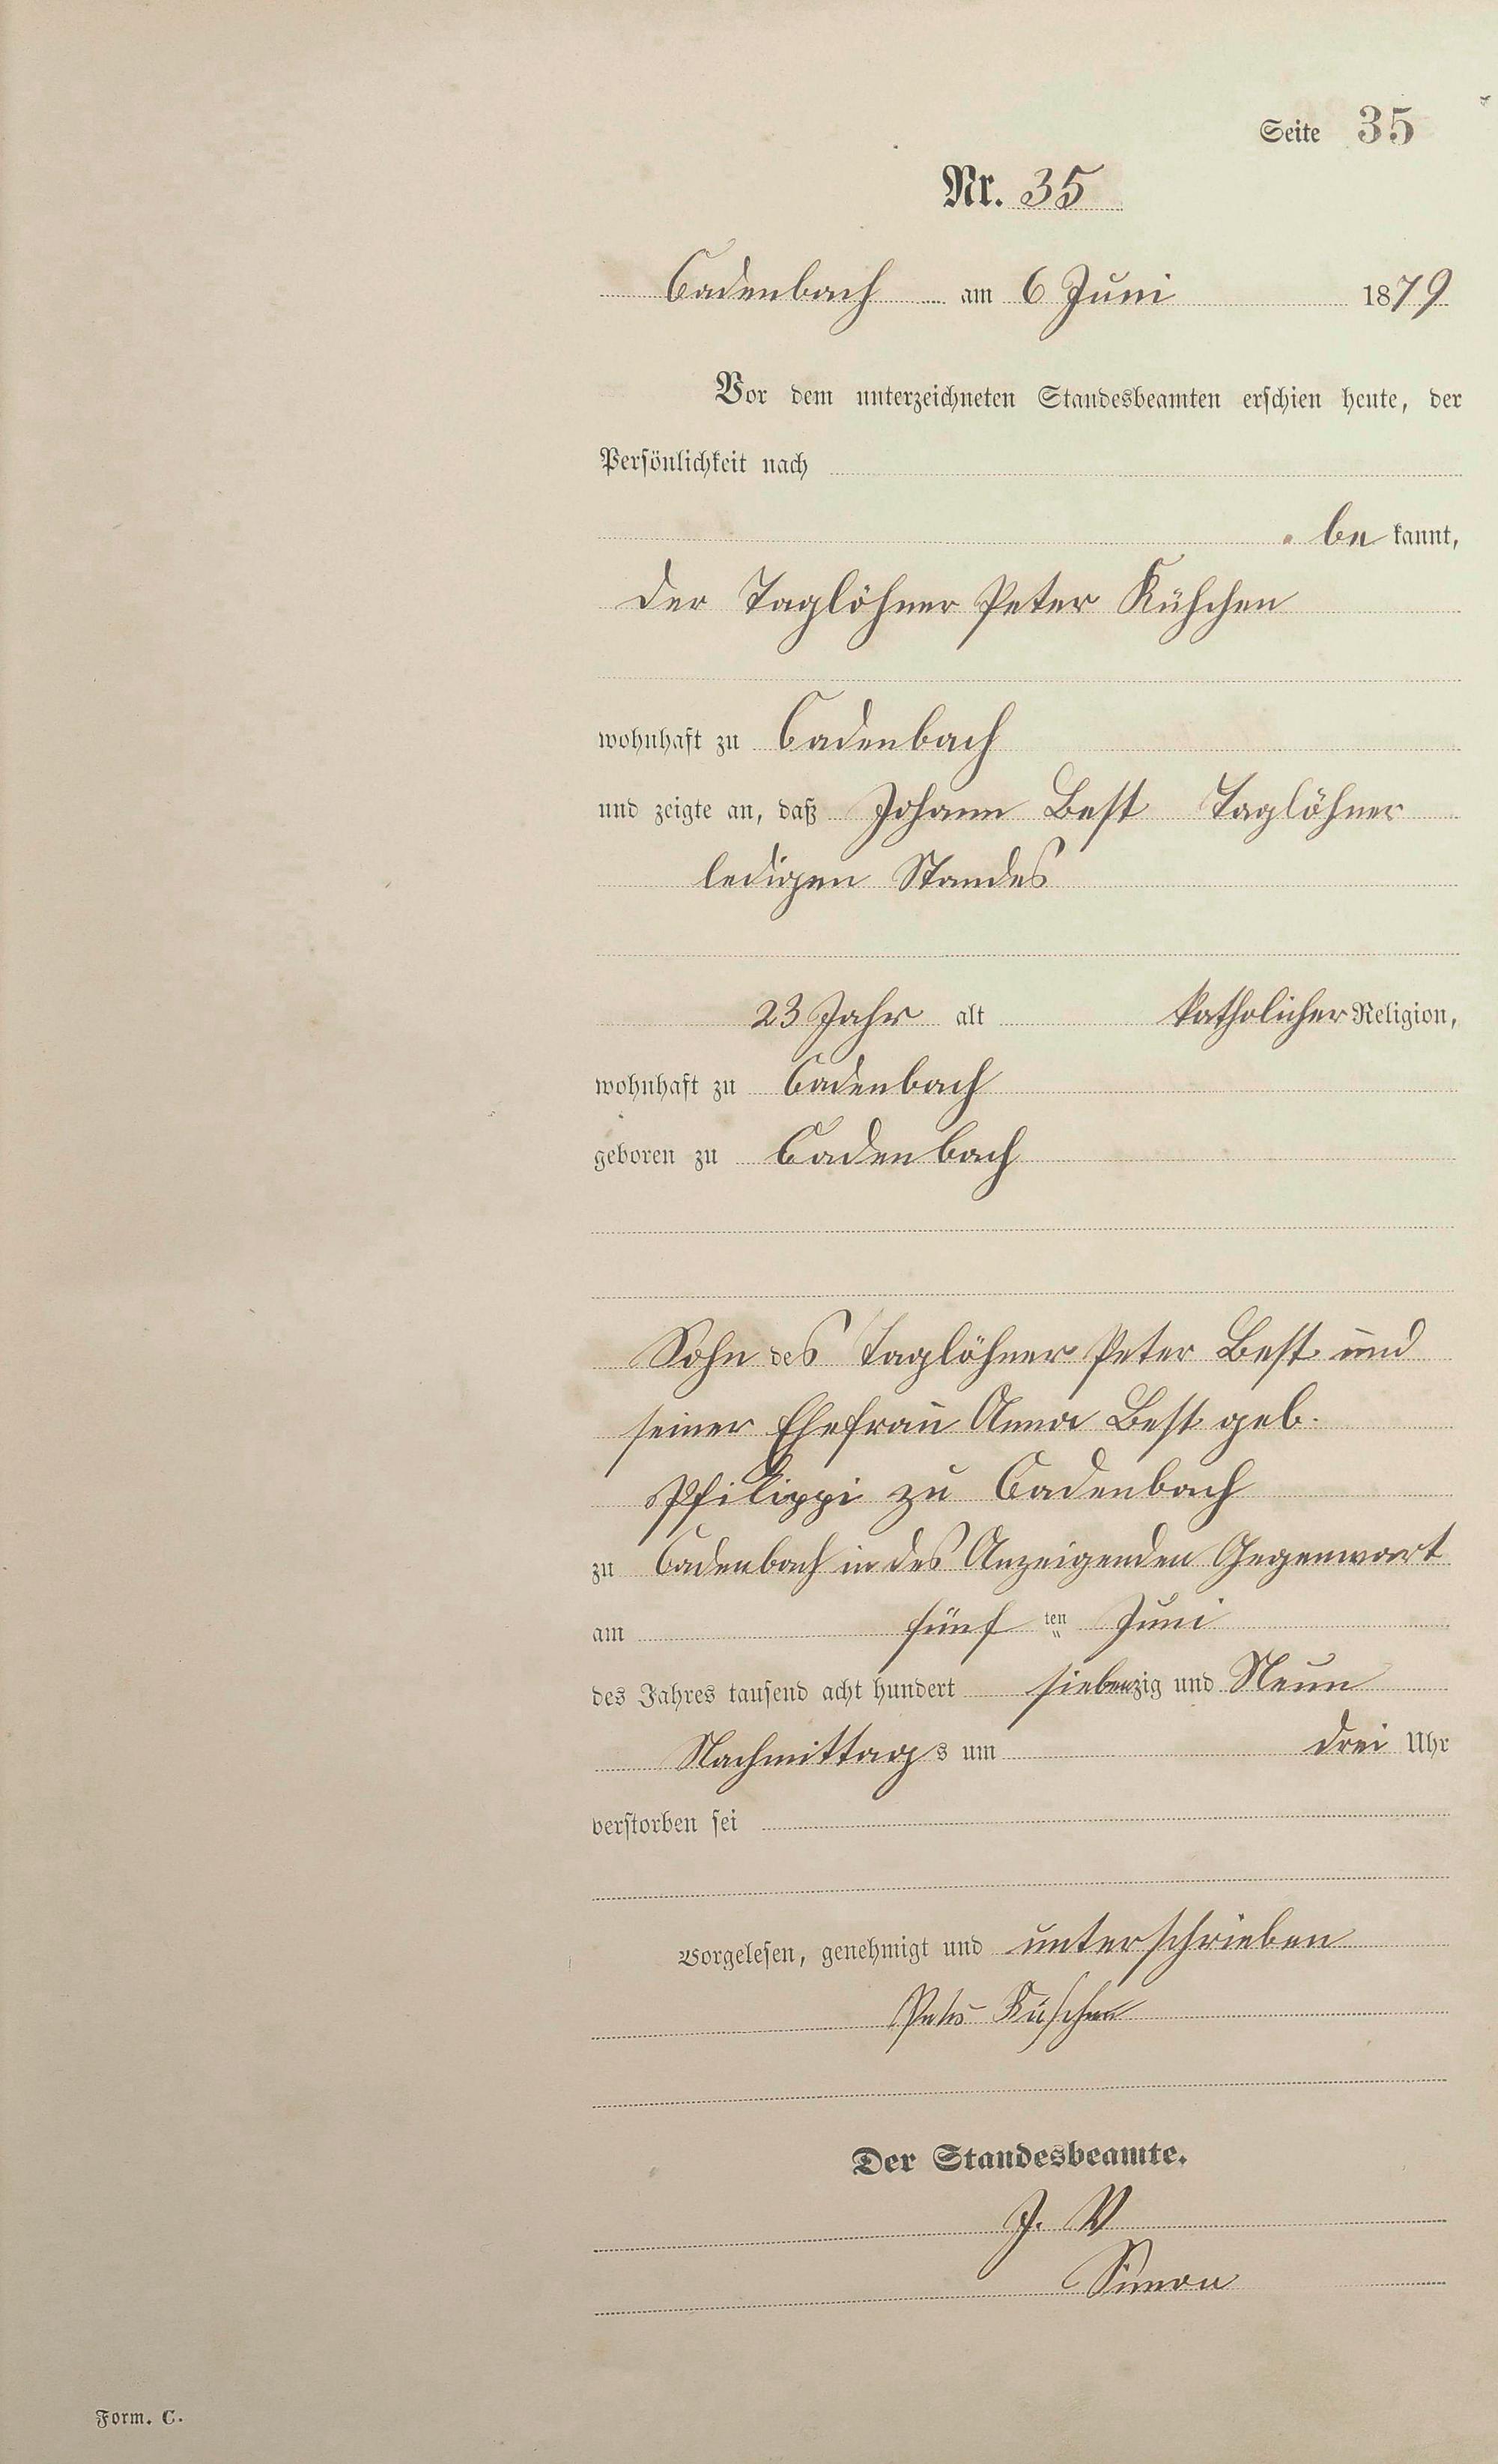 Seite 35
Nr. 35
Cadenbach am 6 Juni 1879
Vor dem unterzeichneten Standesbeamten erschien heute, der
Persönlichkeit nach
be kannt,
der Taglöhner Peter Kühchen
wohnhaft zu Cadenbach
und zeigte an, daß Johann Best Taglöhner
ledigen Standes
23 Jahr alt katholicher Religion,
wohnhaft zu Cadenbach
geboren zu Cadenbach
Sohn des Taglöhner Peter Best und
seiner Ehefrau Anna Best geb.
Philippi zu Cadenbach
zu Cadenbach in des Anzeigenden Gegenwart
am fünf ten Juni
des Jahres tausend acht hundert siebenzig und Neun
Nachmittags um drei Uhr
verstorben sei
Vorgelesen, genehmigt und unterschrieben
Peter
Der Standesbeamte.
J. V
Simon
Form. C.